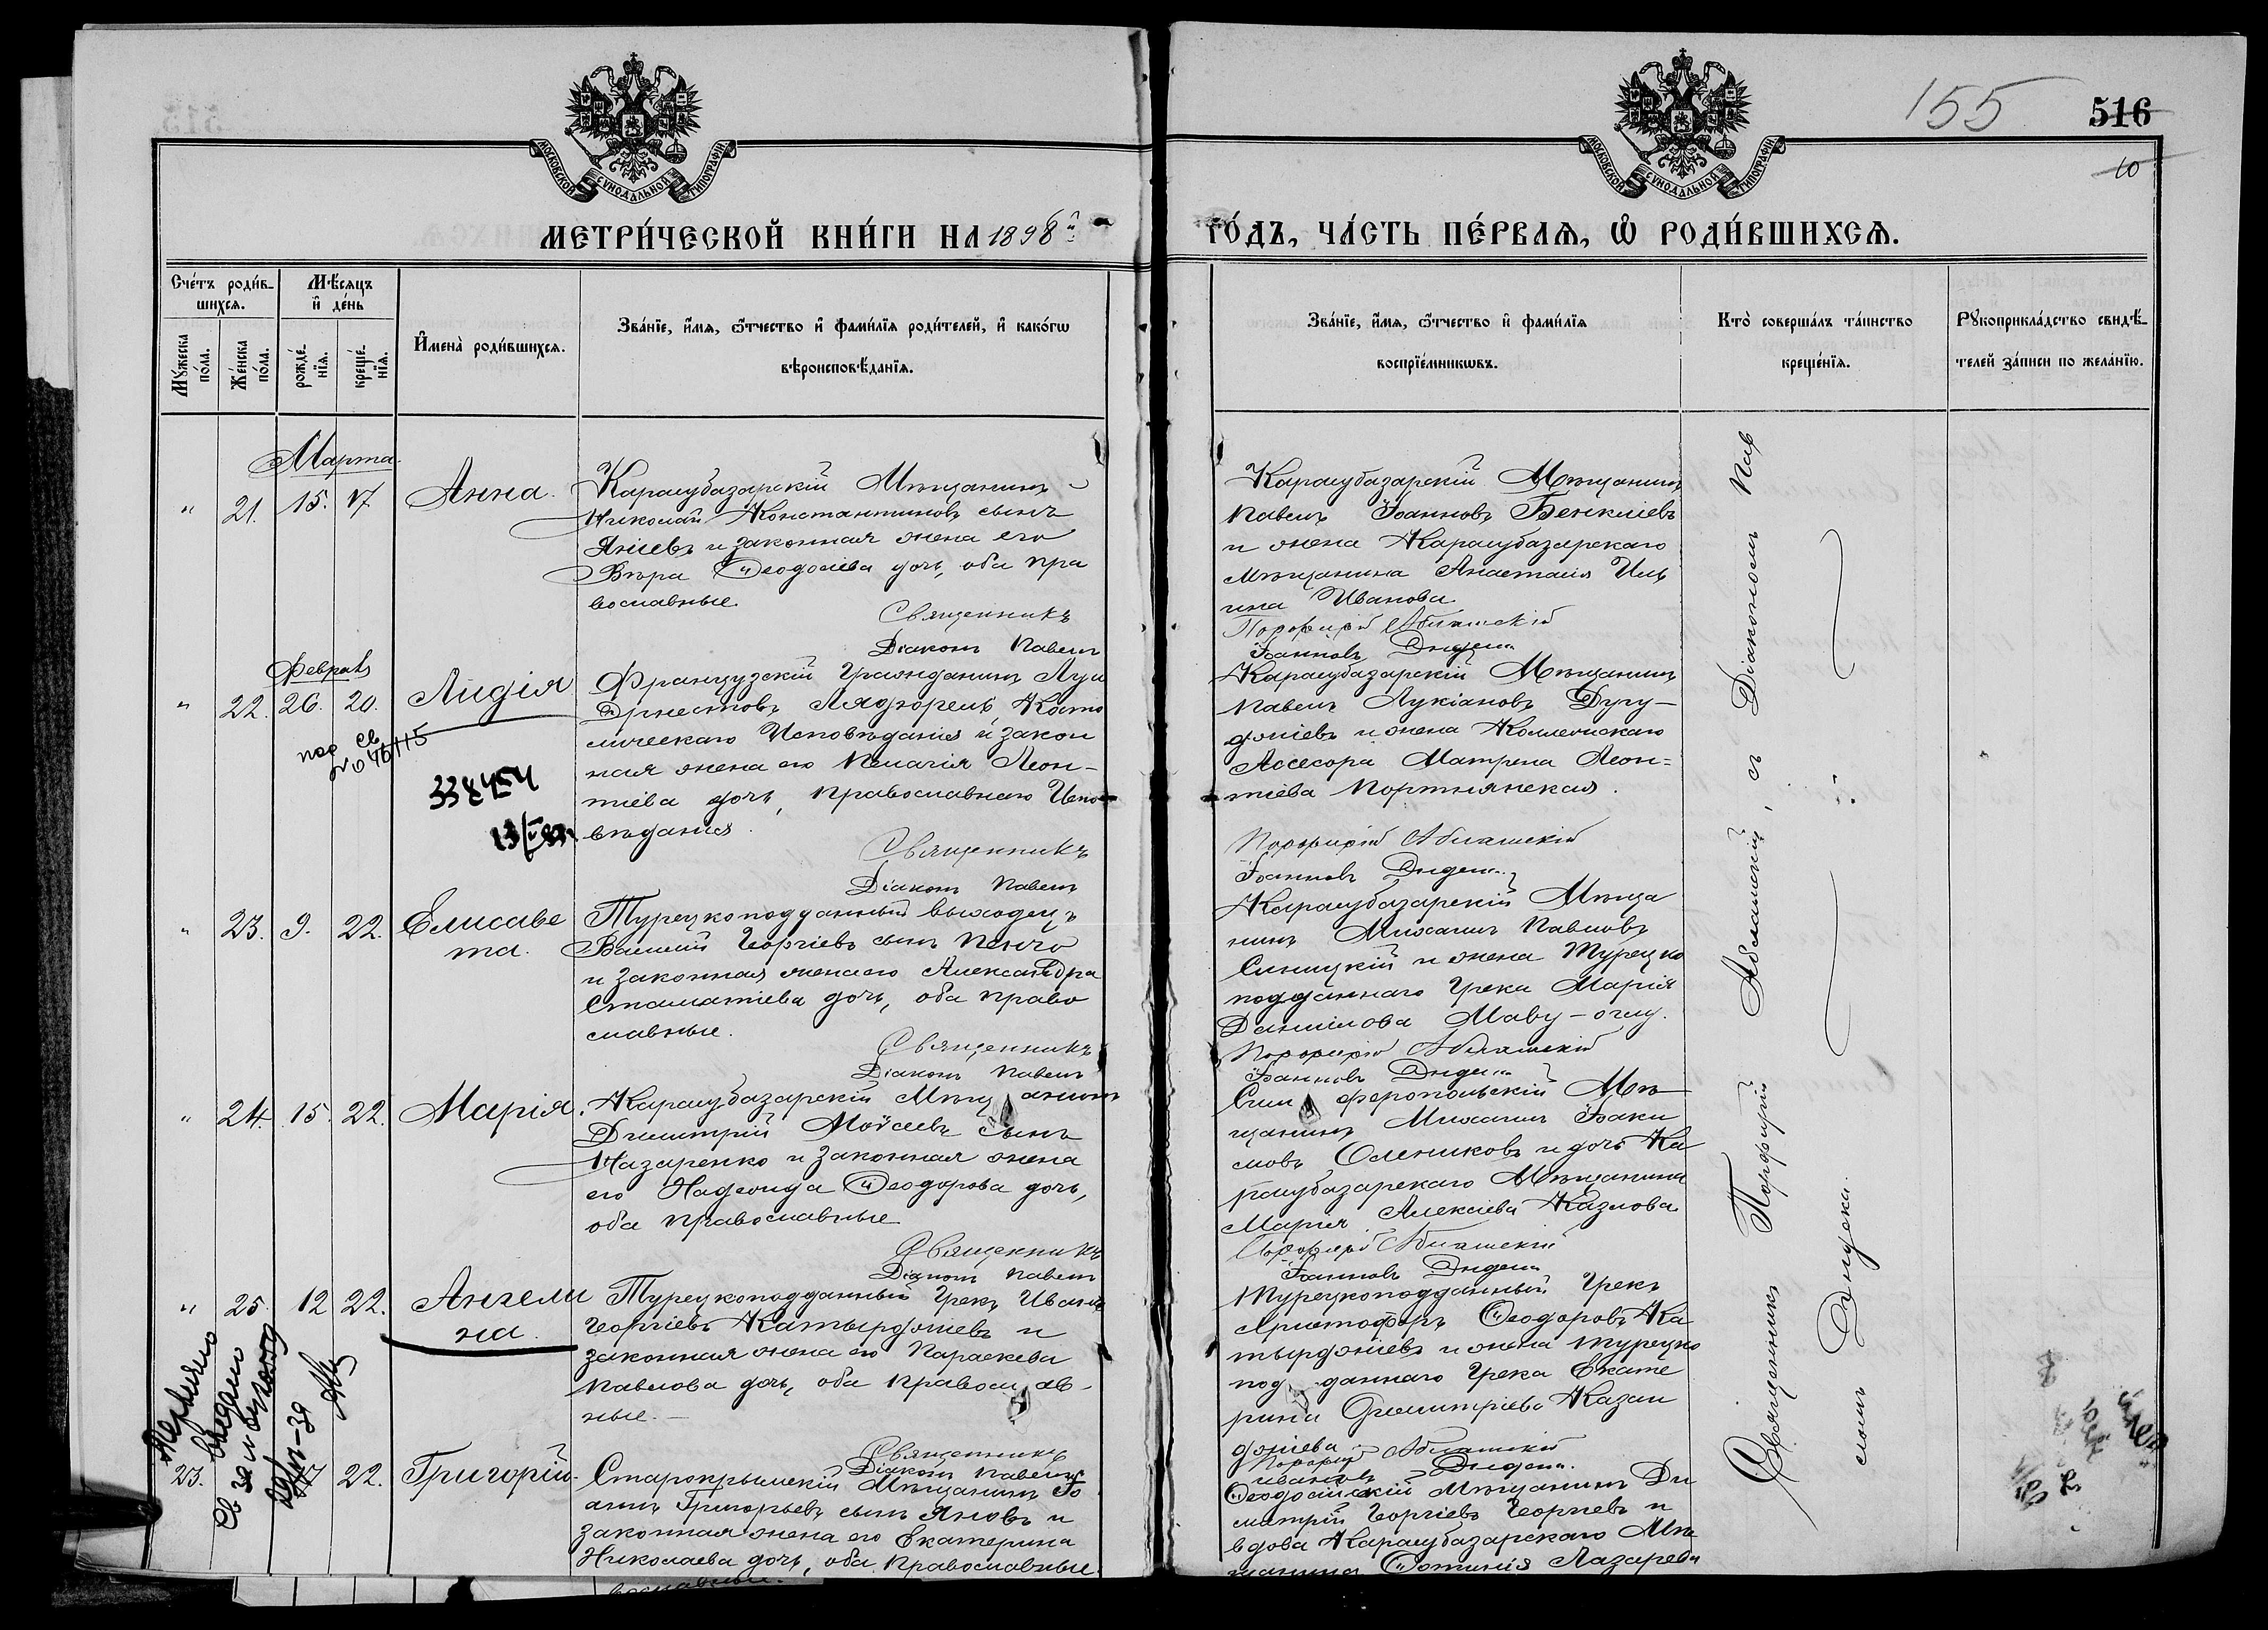 155 516
10
МОСКОВСКОЙ СѴНОДАЛЬНОЙ ТИПОГРАФІИ
МОСКОВСКОЙ СѴНОДАЛЬНОЙ ТИПОГРАФІИ
МЕТРИ́ЧЕСКОЙ КНИ́ГИ НА 1898й
ГО́ДЪ, ЧА́СТЬ ПЕ́РВАѦ, Ѡ҆ РОДИ́ВШИХСѦ.
Сче́тъ роди́в-
шихсѧ.
Мѣ́сяцъ
и҆ де́нь
Мꙋ́жеска
по́ла.
Же́нска
по́ла.
рожде́-
нїѧ.
креще́-
нїѧ.
И҆мена̀ роди́вшихсѧ.
Зва́нїе, и҆́мѧ, ѻ҆́тчество и҆ фами́лїѧ роди́телей, и҆ како́гѡ
вѣроисповѣ́данїѧ.
Зва́нїе, и҆́мѧ, ѻ҆́тчество и҆ фами́лїѧ
воспрїе́мникѡвъ.
Кто̀ соверша́лъ та́инство
креще́нїѧ.
Рꙋкоприкла́дство свидѣ́-
телей за́писи по жела́нїю.
Марта.
" 21. 15. 17. Анна.
Карасубазарскій Мѣщанинъ
Николай Константиновъ сынъ
Яніевъ и законная жена его
Вѣра Ѳеодосіева дочь, оба пра
вославные.
Священникъ
Діаконъ Павелъ
Карасубазарскій Мѣщанинъ
Павелъ Іоанновъ Бенкліевъ
и жена Карасубазарскаго
Мѣщанина Анастасія Иль
ина Иванова.
Порфирій Абламскій
Іоанновъ
Февраль
" 22. 26. 20. Лидія
Французскій Гражданинъ Луи
Эрнестовъ Католи
ческаго Исповѣданія и закон
ная жена его Пелагія Леон-
тіева дочь, Православнаго Испо
вѣданія.
Священникъ
Діаконъ Павелъ
Карасубазарскій Мѣщанинъ
Павелъ Лукіановъ Дугу-
джіевъ и жена Коллежскаго
Ассесора Матрена Леон=
тіева Портнянская.
Порфирій Абламскій
Іоанновъ
св
338454
" 23. 9. 22. Елисаве
та.
Турецкоподданный выходецъ
Василій Георгіевъ сынъ Пенчо
и законная жена его Александра
Стаматіева дочь, оба право
славные.
Священникъ
Діаконъ Павелъ
Карасубазарскій Мѣща
нинъ Михаилъ Павловъ
Синицкій и жена Турецко
подданнаго Грека Марія
Даниілова Маву-оглу.
Порфирій Абламскій
Іоанновъ
" 24. 15. 22. Марія.
Карасубазарскій Мѣщанинъ
Димитрій Моѵсеевъ сынъ
Назаренко и законная жена
его Надежда Ѳеодорова дочь,
оба православные
Священникъ
Діаконъ Павелъ
Симферопольскій Мѣ
щанинъ Михаилъ Іоаки
мовъ Олениковъ и дочь Ка
расубазарскаго Мѣщанина
Марія Алексіева Казлова
Порфирій Абламскій
Іоанновъ
" 25. 12 22. Ангели
на.
Турецкоподданный Грекъ Иванъ
Георгіевъ Катырджіевъ и
законная жена его Параскева
Павлова дочь, оба православ-
ные.
Священникъ
Діаконъ Павелъ
Турецкоподданный Грекъ
Христофоръ Ѳеодоровъ Ка
тырджіевъ и жена Турецко
подданнаго Грека Екате
рина Димитріева Казан
джіева.
Порфирій Абламскій
Ивановъ
23. 17 22. Григорій.
Старокрымскій Мѣщанинъ Іо
аннъ Григорьевъ сынъ Яновъ и
законная жена его Екатерина
Николаева дочь, оба Православные.
Ѳеодосійскій Мѣщанинъ Ди
митрій Георгіевъ Георгіевъ и
вдова Карасубазарскаго Мѣ
щанина Фотинія Лазарева
Священникъ Порфирій Абламскій, съ Діакономъ Пав
ломъ